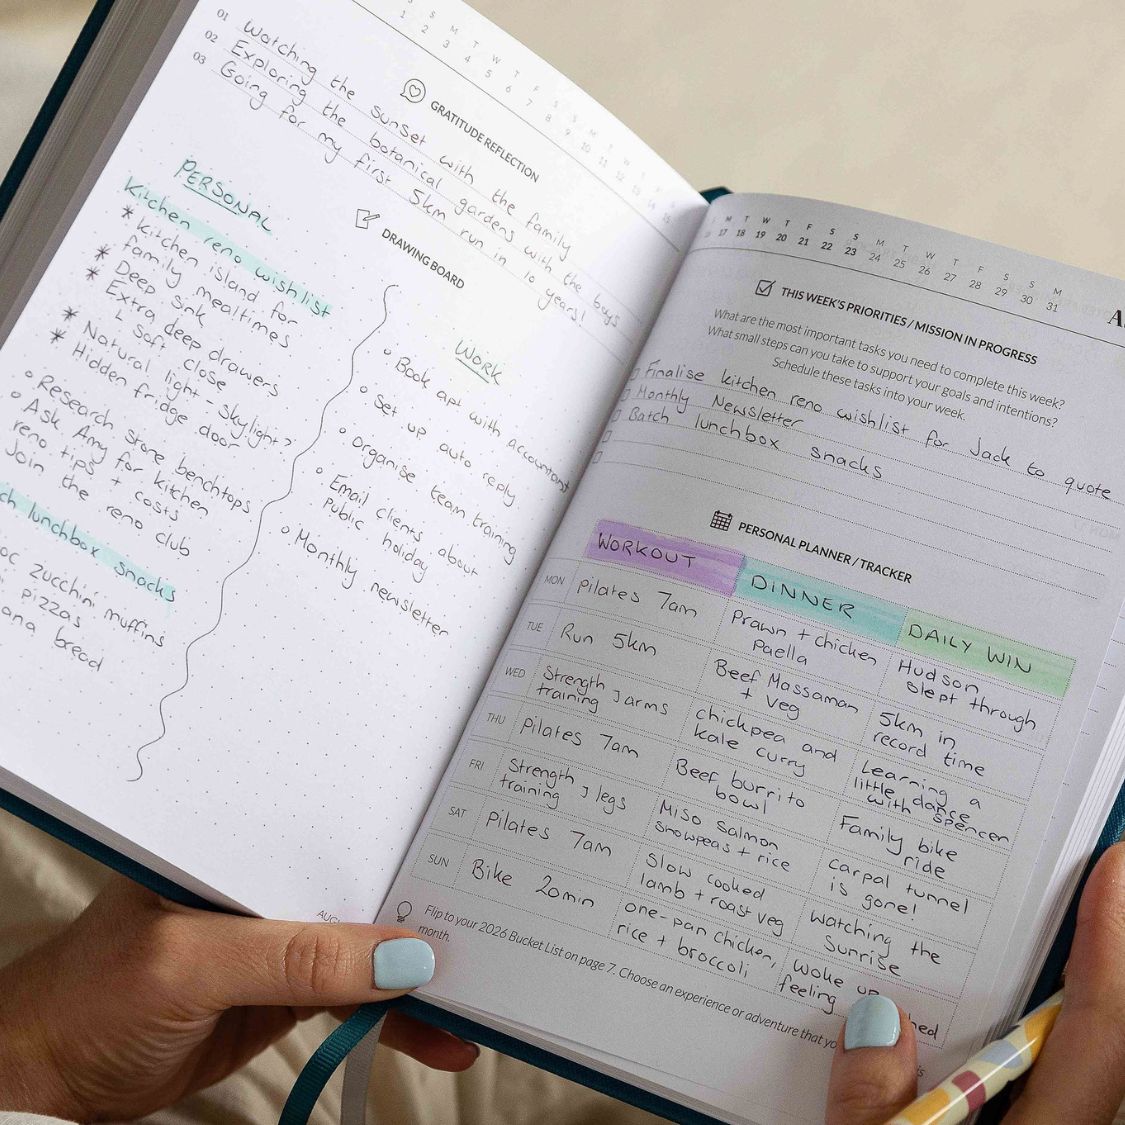 S S M T W T F S S M T W T F S
1 2 3 4 5 6 7 8 9 10 11 12 13 14 15
GRATITUDE REFLECTION
01 Watching the sunset with the family
02 Exploring the botanical gardens with the boys
03 Going for my first 5km run in 10 years!
DRAWING BOARD
PERSONAL
Kitchen reno wishlist
* Kitchen island for
family mealtimes
* Deep sink
* Extra deep drawers
↳ Soft close
* Natural light - skylight?
* Hidden fridge door
Research stone benchtops
Ask Amy for kitchen
reno tips + costs
Join the reno club
ch lunchbox snacks
oc zucchini muffins
pizzas
ana bread
WORK
Book apt with accountant
Set up auto reply
Organise team training
Email clients about
Public holiday
Monthly newsletter
AUGU
M T W T F S S M T W T F S S M
17 18 19 20 21 22 23 24 25 26 27 28 29 30 31
THIS WEEK'S PRIORITIES / MISSION IN PROGRESS
What are the most important tasks you need to complete this week?
What small steps can you take to support your goals and intentions?
Schedule these tasks into your week.
Finalise kitchen reno wishlist for Jack to quote
Monthly Newsletter
Batch lunchbox snacks
PERSONAL PLANNER / TRACKER
WORKOUT DINNER DAILY WIN
MON Pilates 7am Prawn + chicken paella Hudson slept through
TUE Run 5km Beef Massaman + veg 5km in record time
WED Strength training arms chickpea and kale curry Learning a little dance with spencer
THU Pilates 7am Beef burrito bowl Family bike ride
FRI Strength training legs Miso salmon snowpeas + rice carpal tunnel is gone!
SAT Pilates 7am Slow cooked lamb + roast veg watching the Sunrise
SUN Bike 20min one-pan chicken, rice + broccoli woke up feeling
Flip to your 2026 Bucket List on page 7. Choose an experience or adventure that you
month.